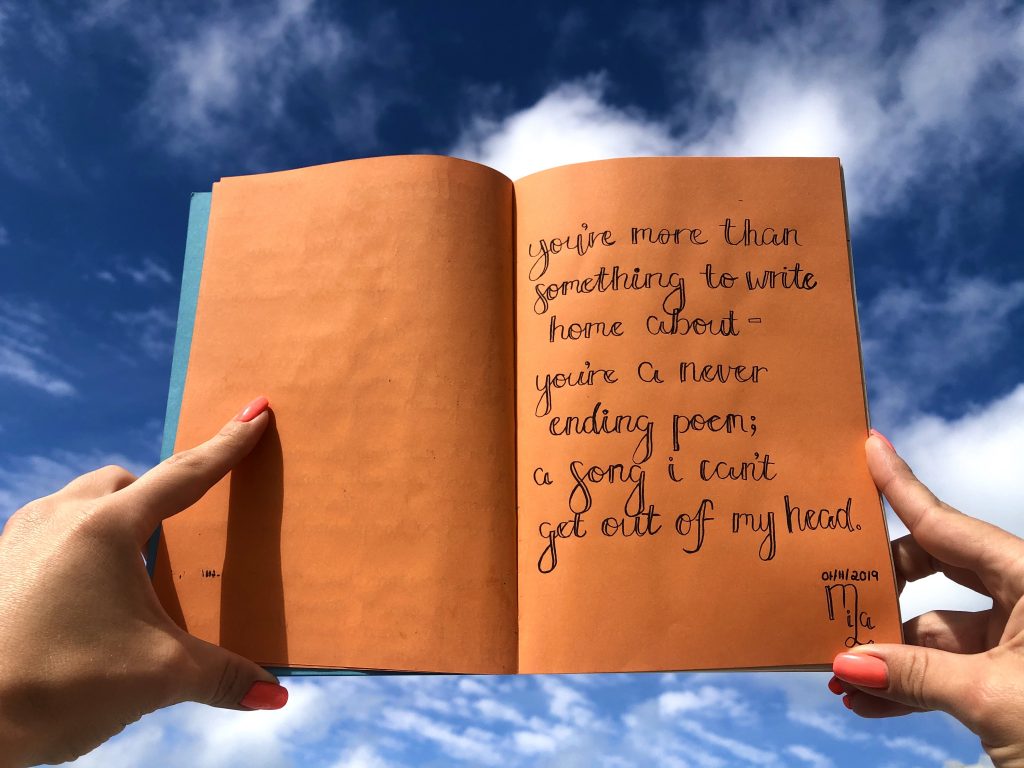 you're more than
something to write
home about -
you're a never
ending poem;
a song i can't
get out of my head.
01/11/2019
Mila